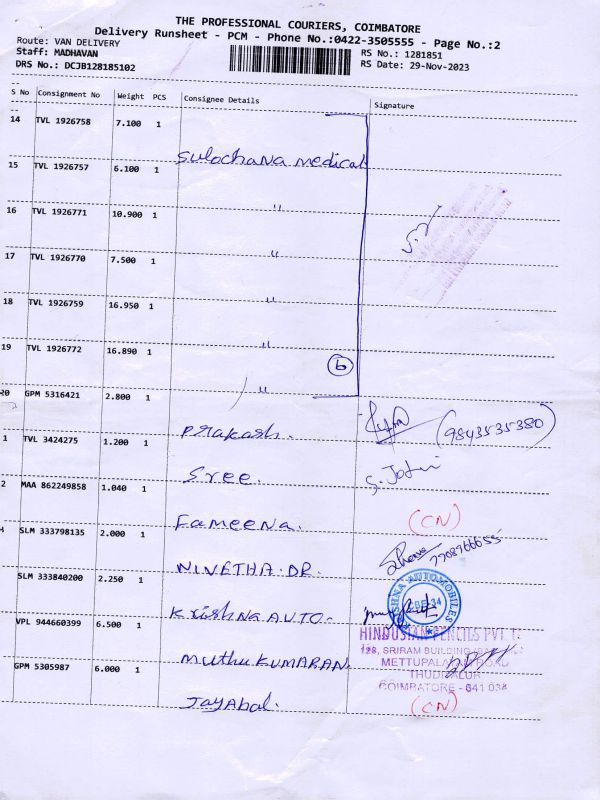 THE PROFESSIONAL COURIERS, COIMBATORE
Delivery Runsheet - PCM - Phone No.:0422-3505555 - Page No.:2
Route: VAN DELIVERY
Staff: MADHAVAN
DRS No.: DCJB128185102
RS No.: 1281851
RS Date: 29-Nov-2023
S No Consignment No Weight PCS Consignee Details Signature
14 TVL 1926758 7.100 1 Sulochana medical
15 TVL 1926757 6.100 1 "
16 TVL 1926771 10.900 1 "
17 TVL 1926770 7.500 1 "
18 TVL 1926759 16.950 1 "
19 TVL 1926772 16.890 1 "
6
20 GPM 5316421 2.800 1 Prakash. (9843535380)
1 TVL 3424275 1.200 1 Sree. S. Joti
2 MAA 862249858 1.040 1 Fameena. (CN)
SLM 333798135 2.000 1 NIVETHA.DR.
SLM 333840200 2.250 1 Krishna AUTO.
VPL 944660399 6.500 1 Muthu KUMARAN
GPM 5305987 6.000 1 Jayabal. (CN)
AUTOMOBILES
HINDUSTAN PENCILS PVT.
128, SRIRAM BUILDING
METTUPALAYAM ROAD
THUDIYALUR
COIMBATORE - 641 034